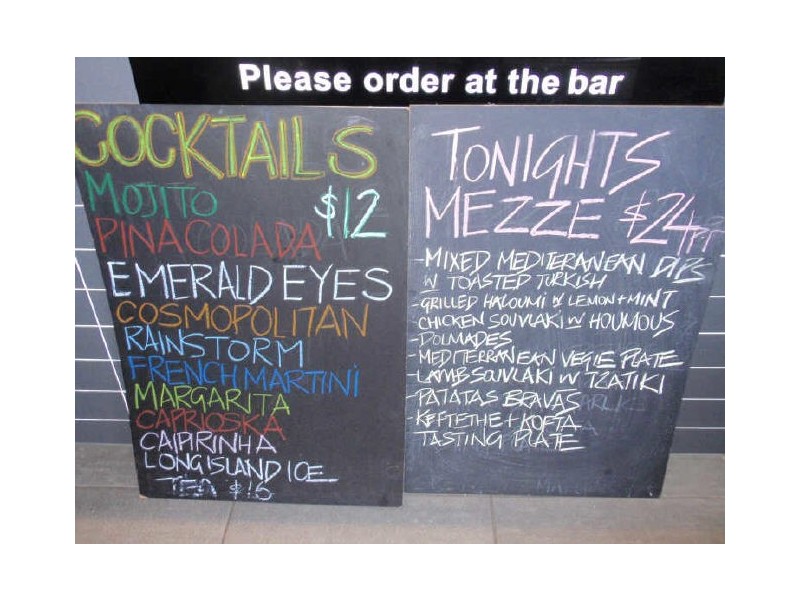 Please order at the bar
COCKTAILS
MOJITO $12
PINA COLADA
EMERALD EYES
COSMOPOLITAN
RAINSTORM
FRENCH MARTINI
MARGARITA
CAPRIOSKA
CAIPIRINHA
LONG ISLAND ICE
TEA $15
TONIGHTS
MEZZE $24
-MIXED MEDITERANEAN DIPS
W TOASTED TURKISH
-GRILLED HALOUMI W LEMON + MINT
CHICKEN SOUVLAKI W HOUMOUS
-DOLMADES
-MEDITERRANEAN VEGIE PLATE
-LAMB SOUVLAKI W TZATIKI
-PATATAS BRAVAS
-KEFTETHE + KOFTA
TASTING PLATE